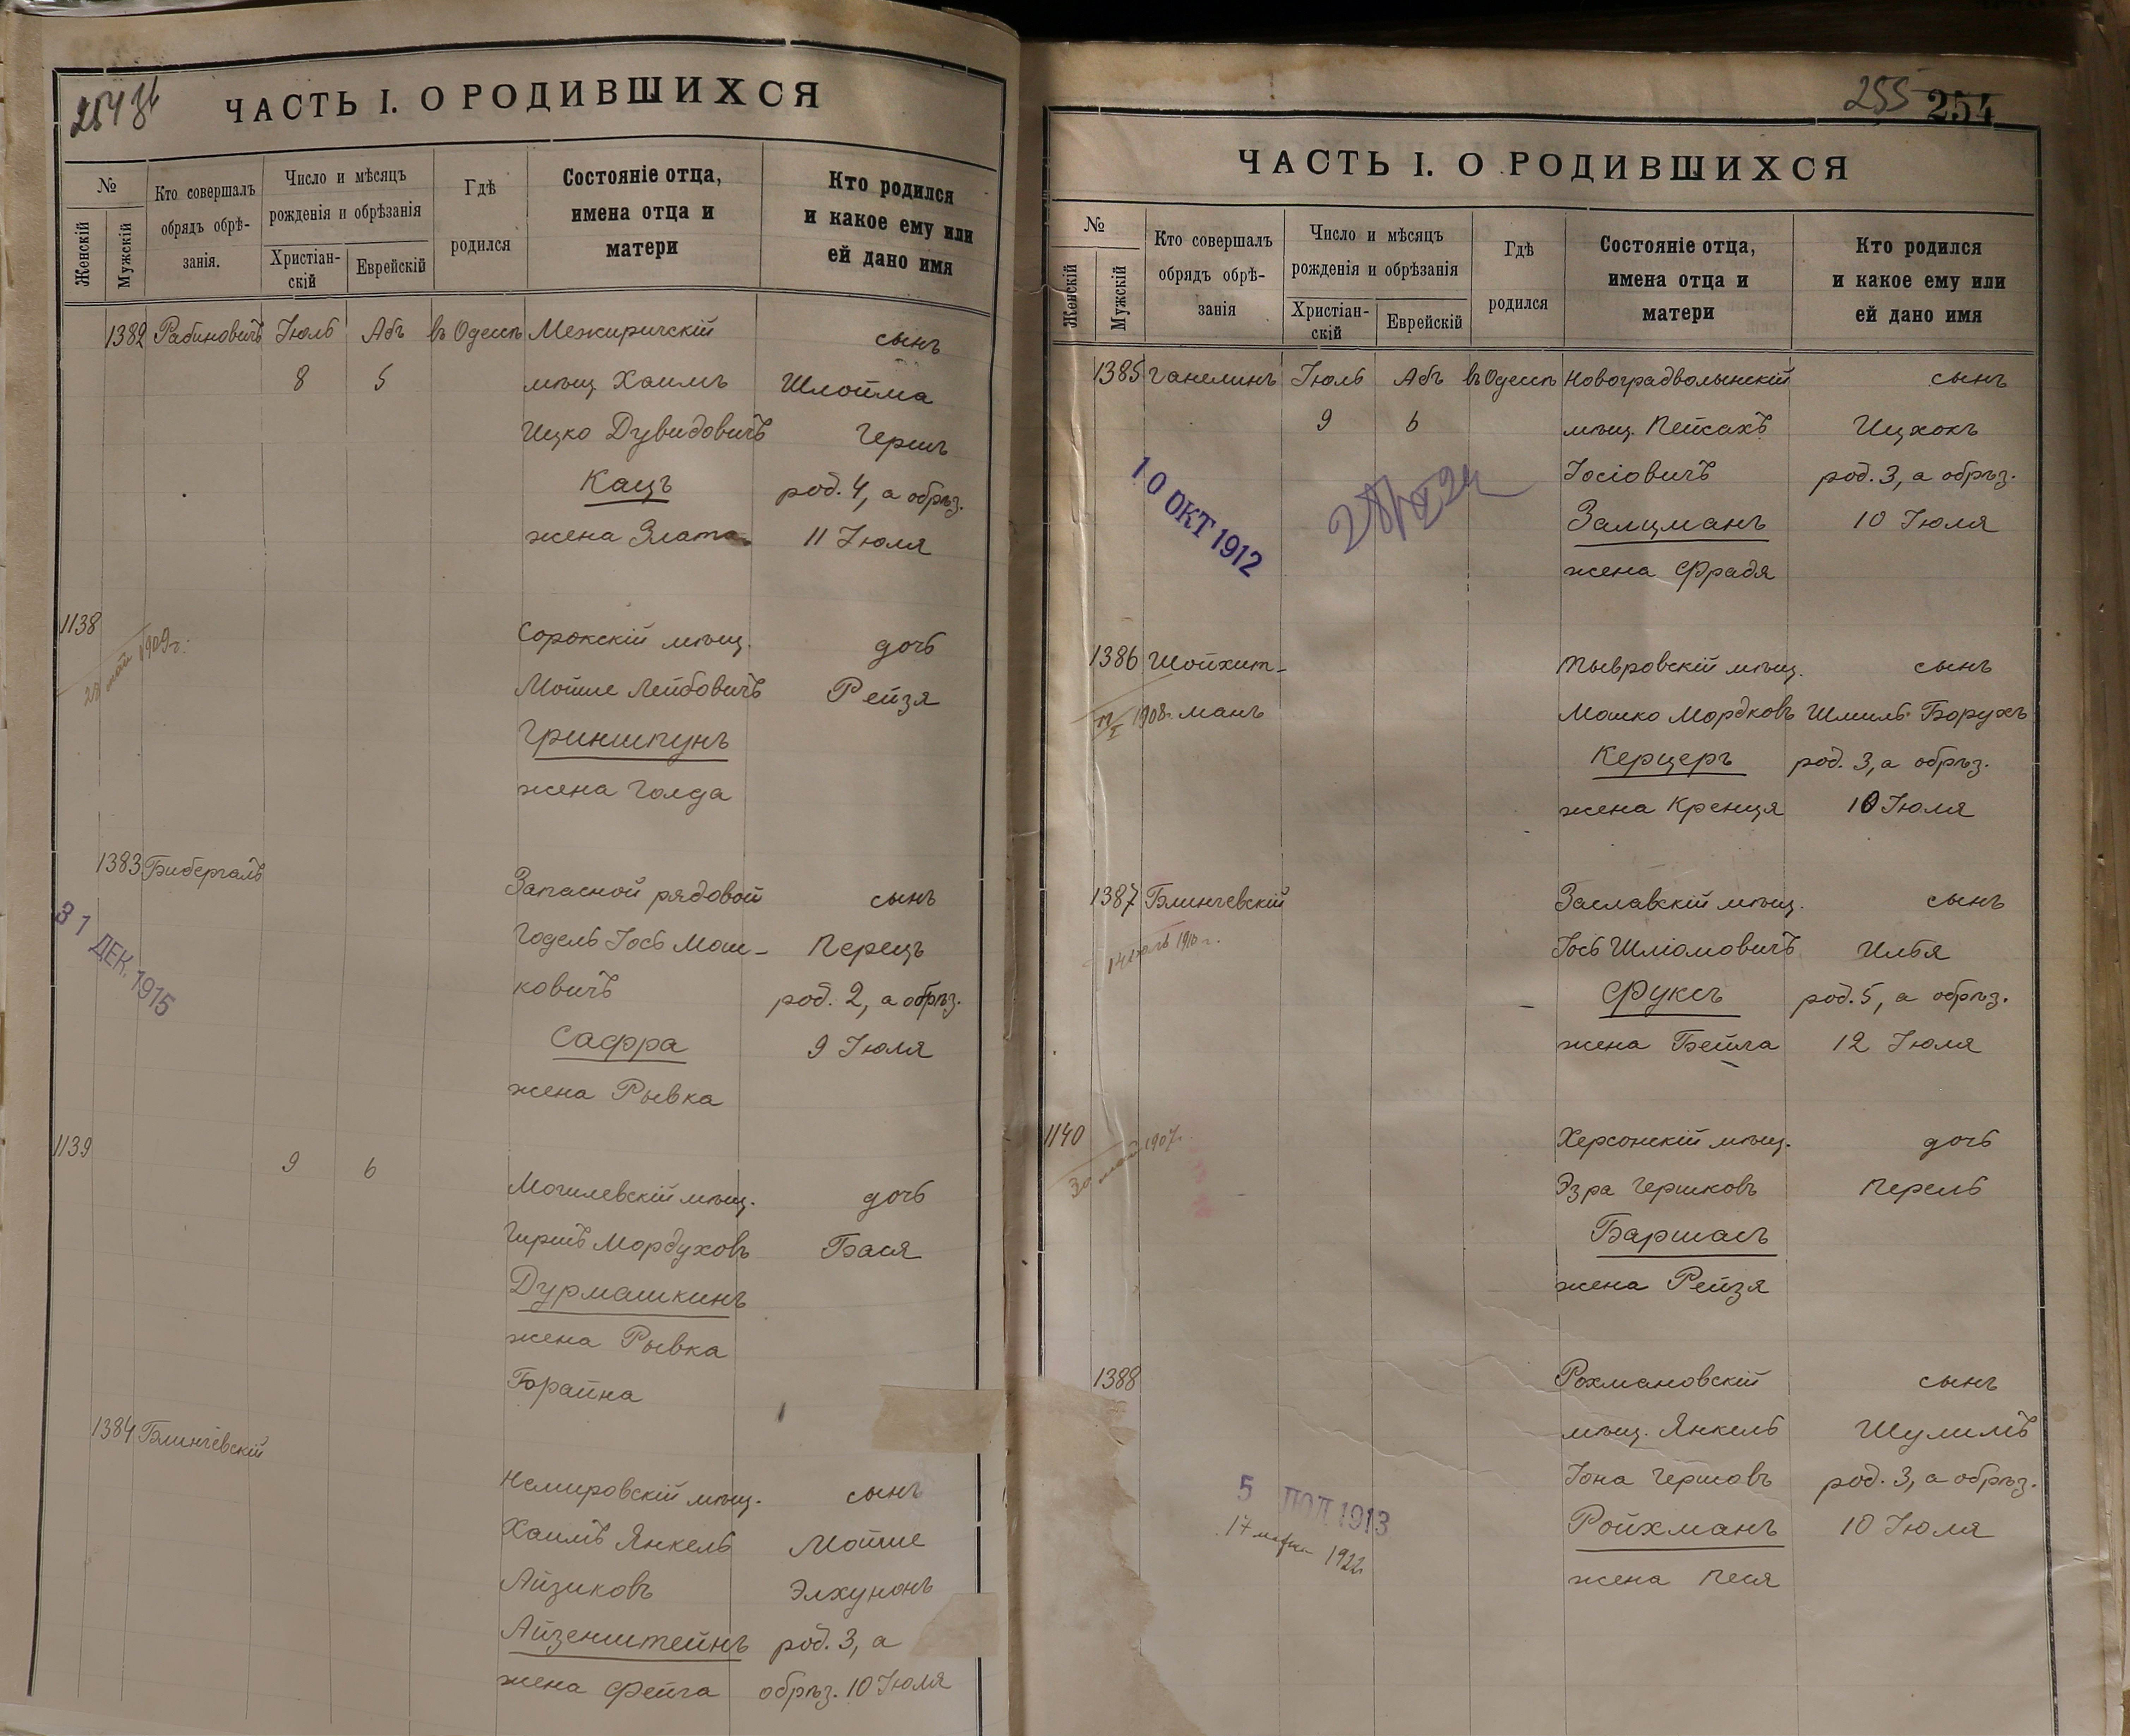 254 об
ЧАСТЬ I. О РОДИВШИХСЯ
№
Женскій
Мужскій
Кто совершалъ
обрядъ обрѣ-
занія.
Число и мѣсяцъ
рожденія и обрѣзанія
Христіан-
скій
Еврейскій
Гдѣ
родился
Состояніе отца,
имена отца и
матери
Кто родился
и какое ему или
ей дано имя
1382 Рабиновичъ Іюль Абъ въ Одессѣ Межиричскій сынъ
8 5 мѣщ Хаимъ Шлойма
Ицко Дувидовичъ Гершъ
Кацъ род. 4, а обрѣз.
жена Злата 11 Іюля
1138 Сорокскій мѣщ. дочь
28 май 1909 г. Мойше Лейбовичъ Рейзя
Гриншпунъ
жена Голда
1383 Бибергалъ Запасной рядовой сынъ
31 ДЕК. 1915
Годель Іось Мош- Перецъ
ковичъ род. 2, а обрѣз.
Сафра 9 Іюля
жена Рывка
1139 9 6 Могилевскій мѣщ. дочь
Гиршъ Мордуховъ Бася
Дурмашкинъ
жена Рывка
Брайна
1384 Блинчевскій
Немировскій мѣщ. сынъ
Хаимъ Янкель Мойше
Айзиковъ Элхунонъ
Айзенштейнъ род. 3, а
жена Фейга обрѣз. 10 Іюля
255 254
ЧАСТЬ I. О РОДИВШИХСЯ
№
Женскій
Мужскій
Кто совершалъ
обрядъ обрѣ-
занія
Число и мѣсяцъ
рожденія и обрѣзанія
Христіан-
скій
Еврейскій
Гдѣ
родился
Состояніе отца,
имена отца и
матери
Кто родился
и какое ему или
ей дано имя
1385 Ганелинъ Іюль Абъ въ Одессѣ Новоградволынскій сынъ
9 6 мѣщ. Пейсахъ Ицхокъ
10 ОКТ 1912
Іосіовичъ род. 3, а обрѣз.
Залцманъ 10 Іюля
жена Фрадя
1386 Шойхит- Тывровскій мѣщ. сынъ
1908 г. манъ Мошко Мордковъ Шмиль Борухъ
Керцеръ род. 3, а обрѣз.
жена Кренця 10 Іюля
1387 Блинчевскій Заславскій мѣщ. сынъ
1910 г. Іось Шліомовичъ Илья
Фуксъ род. 5, а обрѣз.
жена Бейла 12 Іюля
1140 Херсонскій мѣщ. дочь
30 май 1907 г. Эзра Гершковъ Перель
Баршасъ
жена Рейзя
1388 Рохмановскій сынъ
мѣщ. Янкель Шулимъ
Іона Гершовъ род. 3, а обрѣз.
5 1913
Ройхманъ 10 Іюля
17 марта 1922
жена Песя